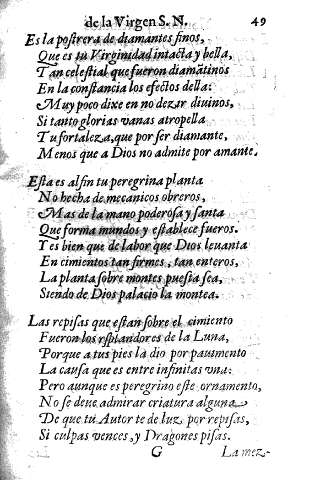 de la Virgen S. N. 49
Es la postrera de diamantes finos,
Que es tu Virginidad intacta y bella,
Tan celestial que fueron diamãtinos
En la constancia los efectos della:
Muy poco dixe en no dezir diuinos,
Si tanto glorias vanas atropella
Tu fortaleza, que por ser diamante,
Menos que a Dios no admite por amante.
Esta es al fin tu peregrina planta
No hecha de mecanicos obreros,
Mas de la mano poderosa y santa
Que forma mundos y establece fueros.
Y es bien que de labor que Dios leuanta
En cimientos tan firmes, tan enteros,
La planta sobre montes puesta sea,
Siendo de Dios palacio la montea.
Las repisas que estan sobre el cimiento
Fueron los rsplandores de la Luna,
Porque a tus pies la dio por pauimento
La causa que es entre infinitas vna:
Pero aunque es peregrino este ornamento,
No se deue admirar criatura alguna
De que tu Autor te de luz por repisas,
Si culpas vences, y Dragones pisas.
G La mez-